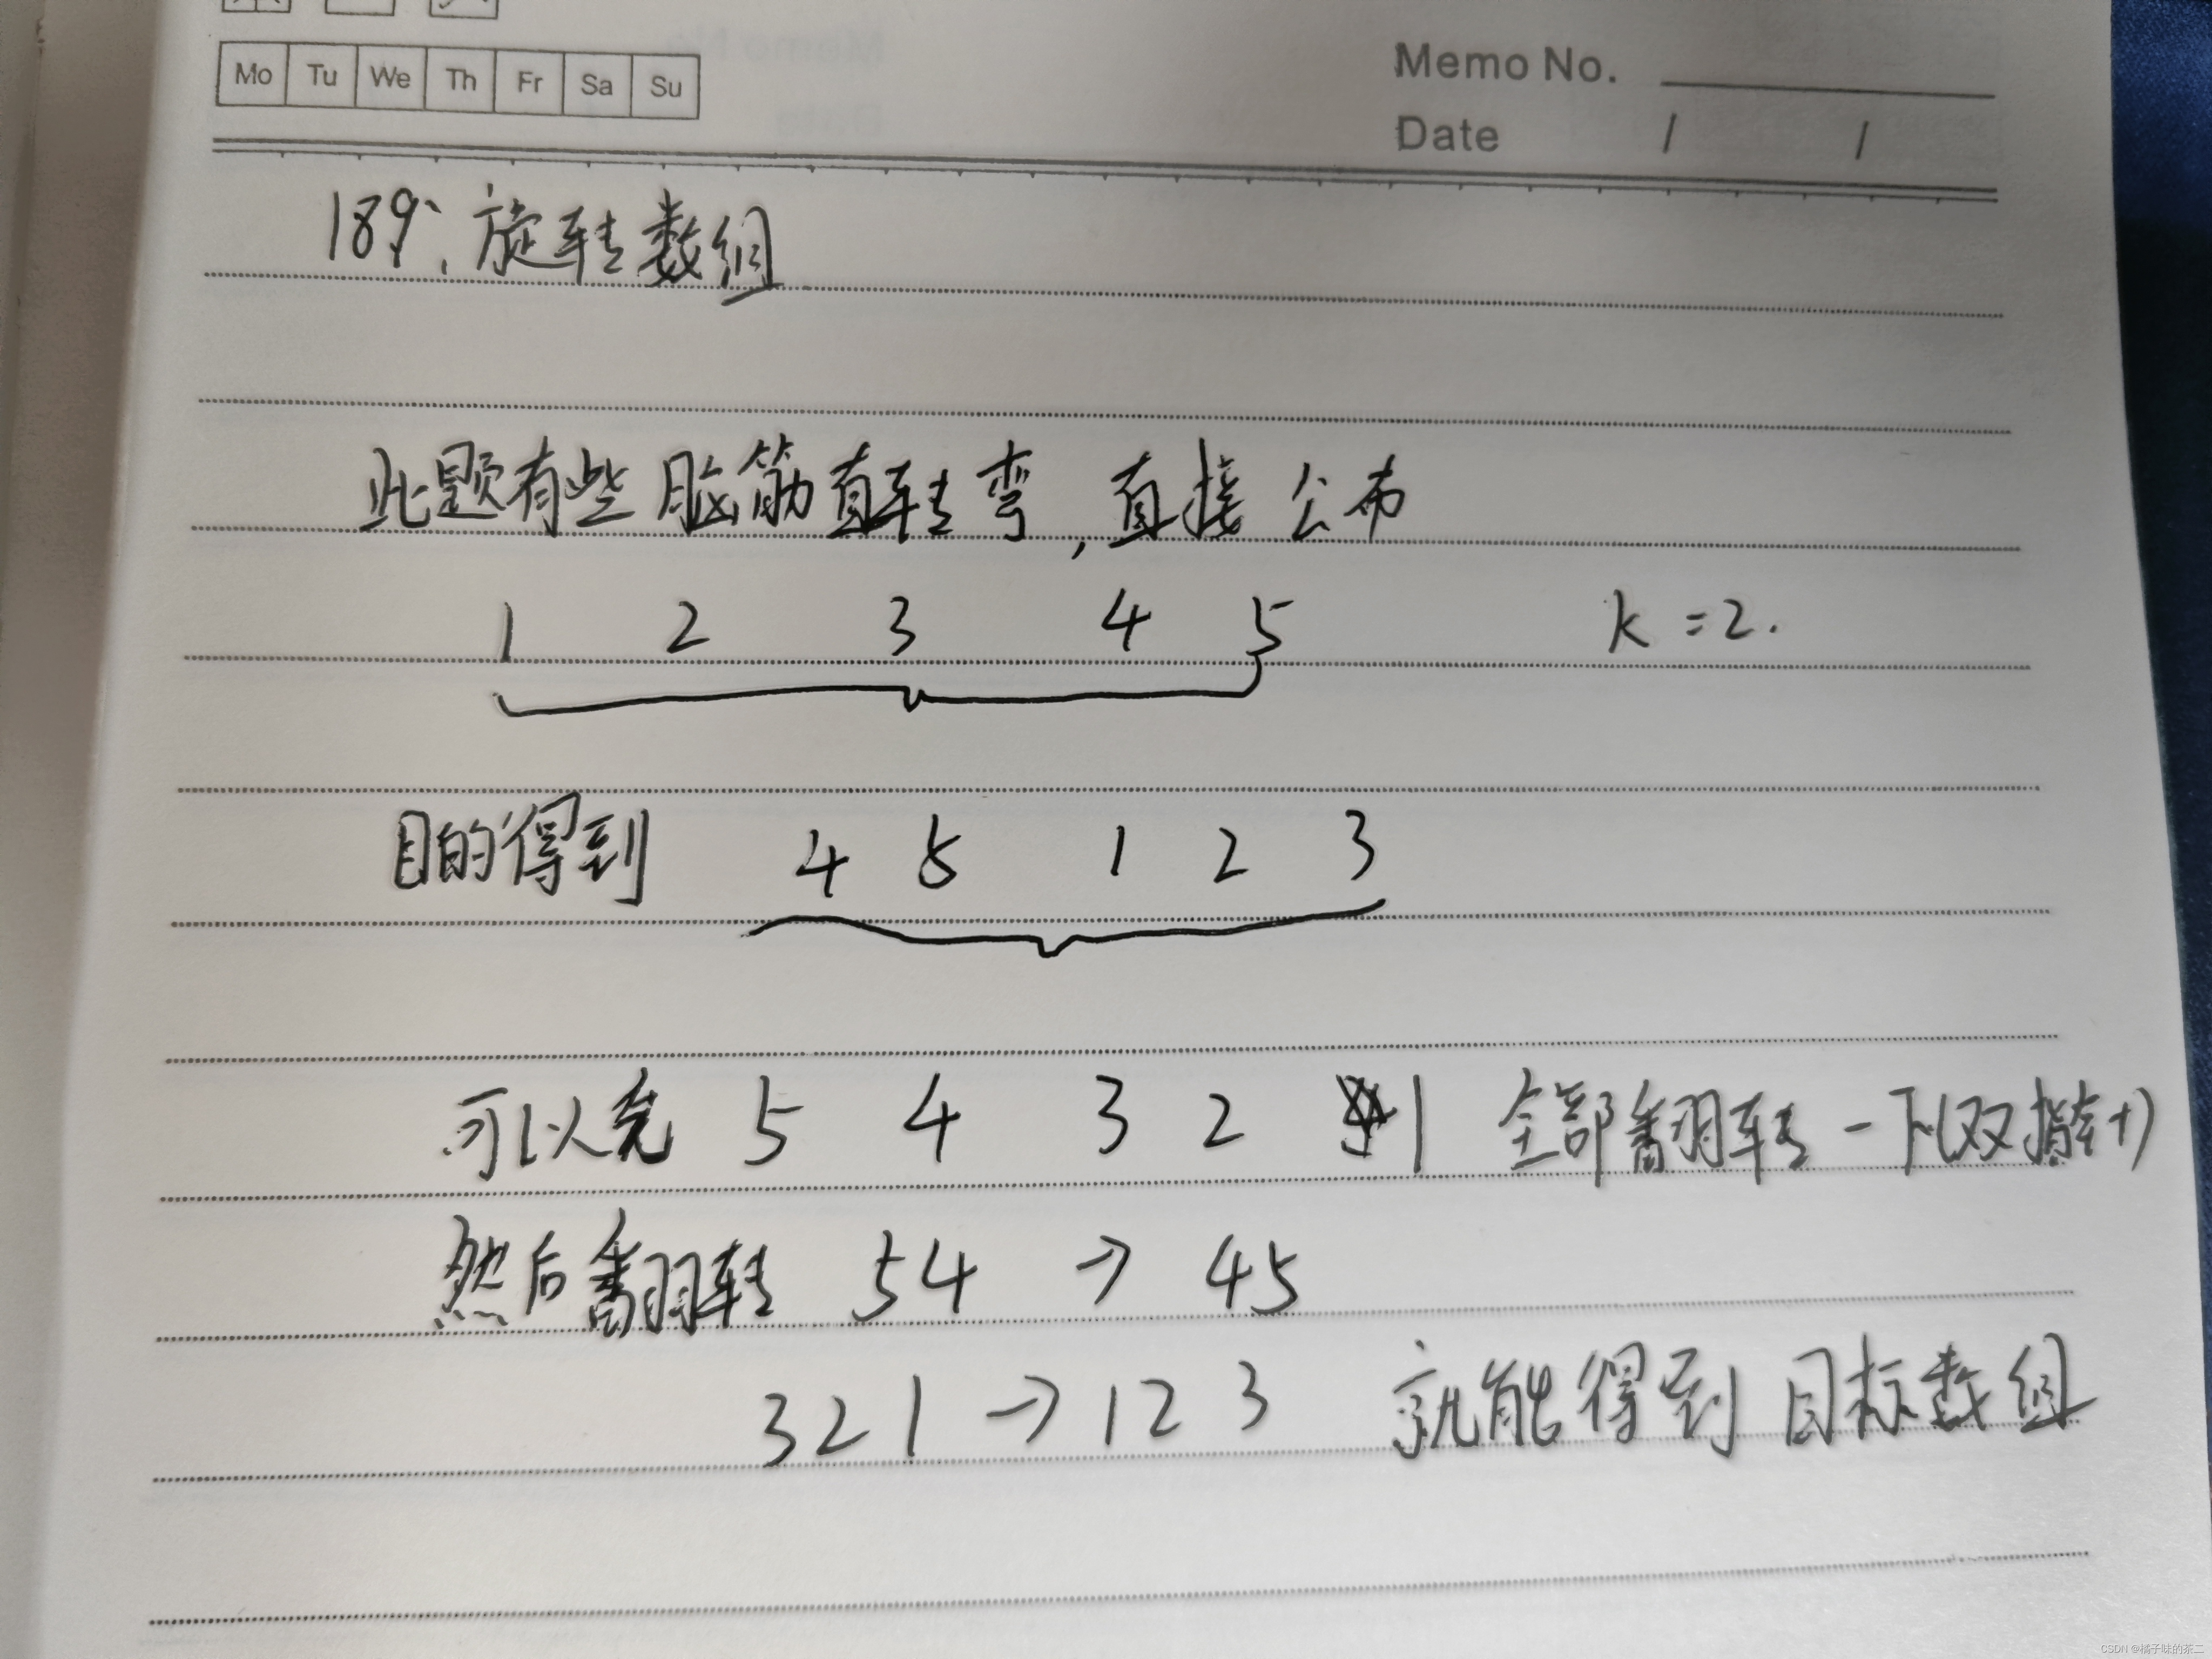 Mo Tu We Th Fr Sa Su
Memo No.
Date / /
189、旋转数组
此题有些脑筋直转弯,直接公布
1 2 3 4 5 k=2.
目的得到 4 5 1 2 3
可以先 5 4 3 2 1 全部翻转一下(双指针)
然后翻转 54 → 45
321 → 123 就能得到目标数组
CSDN @橘子味的茶二